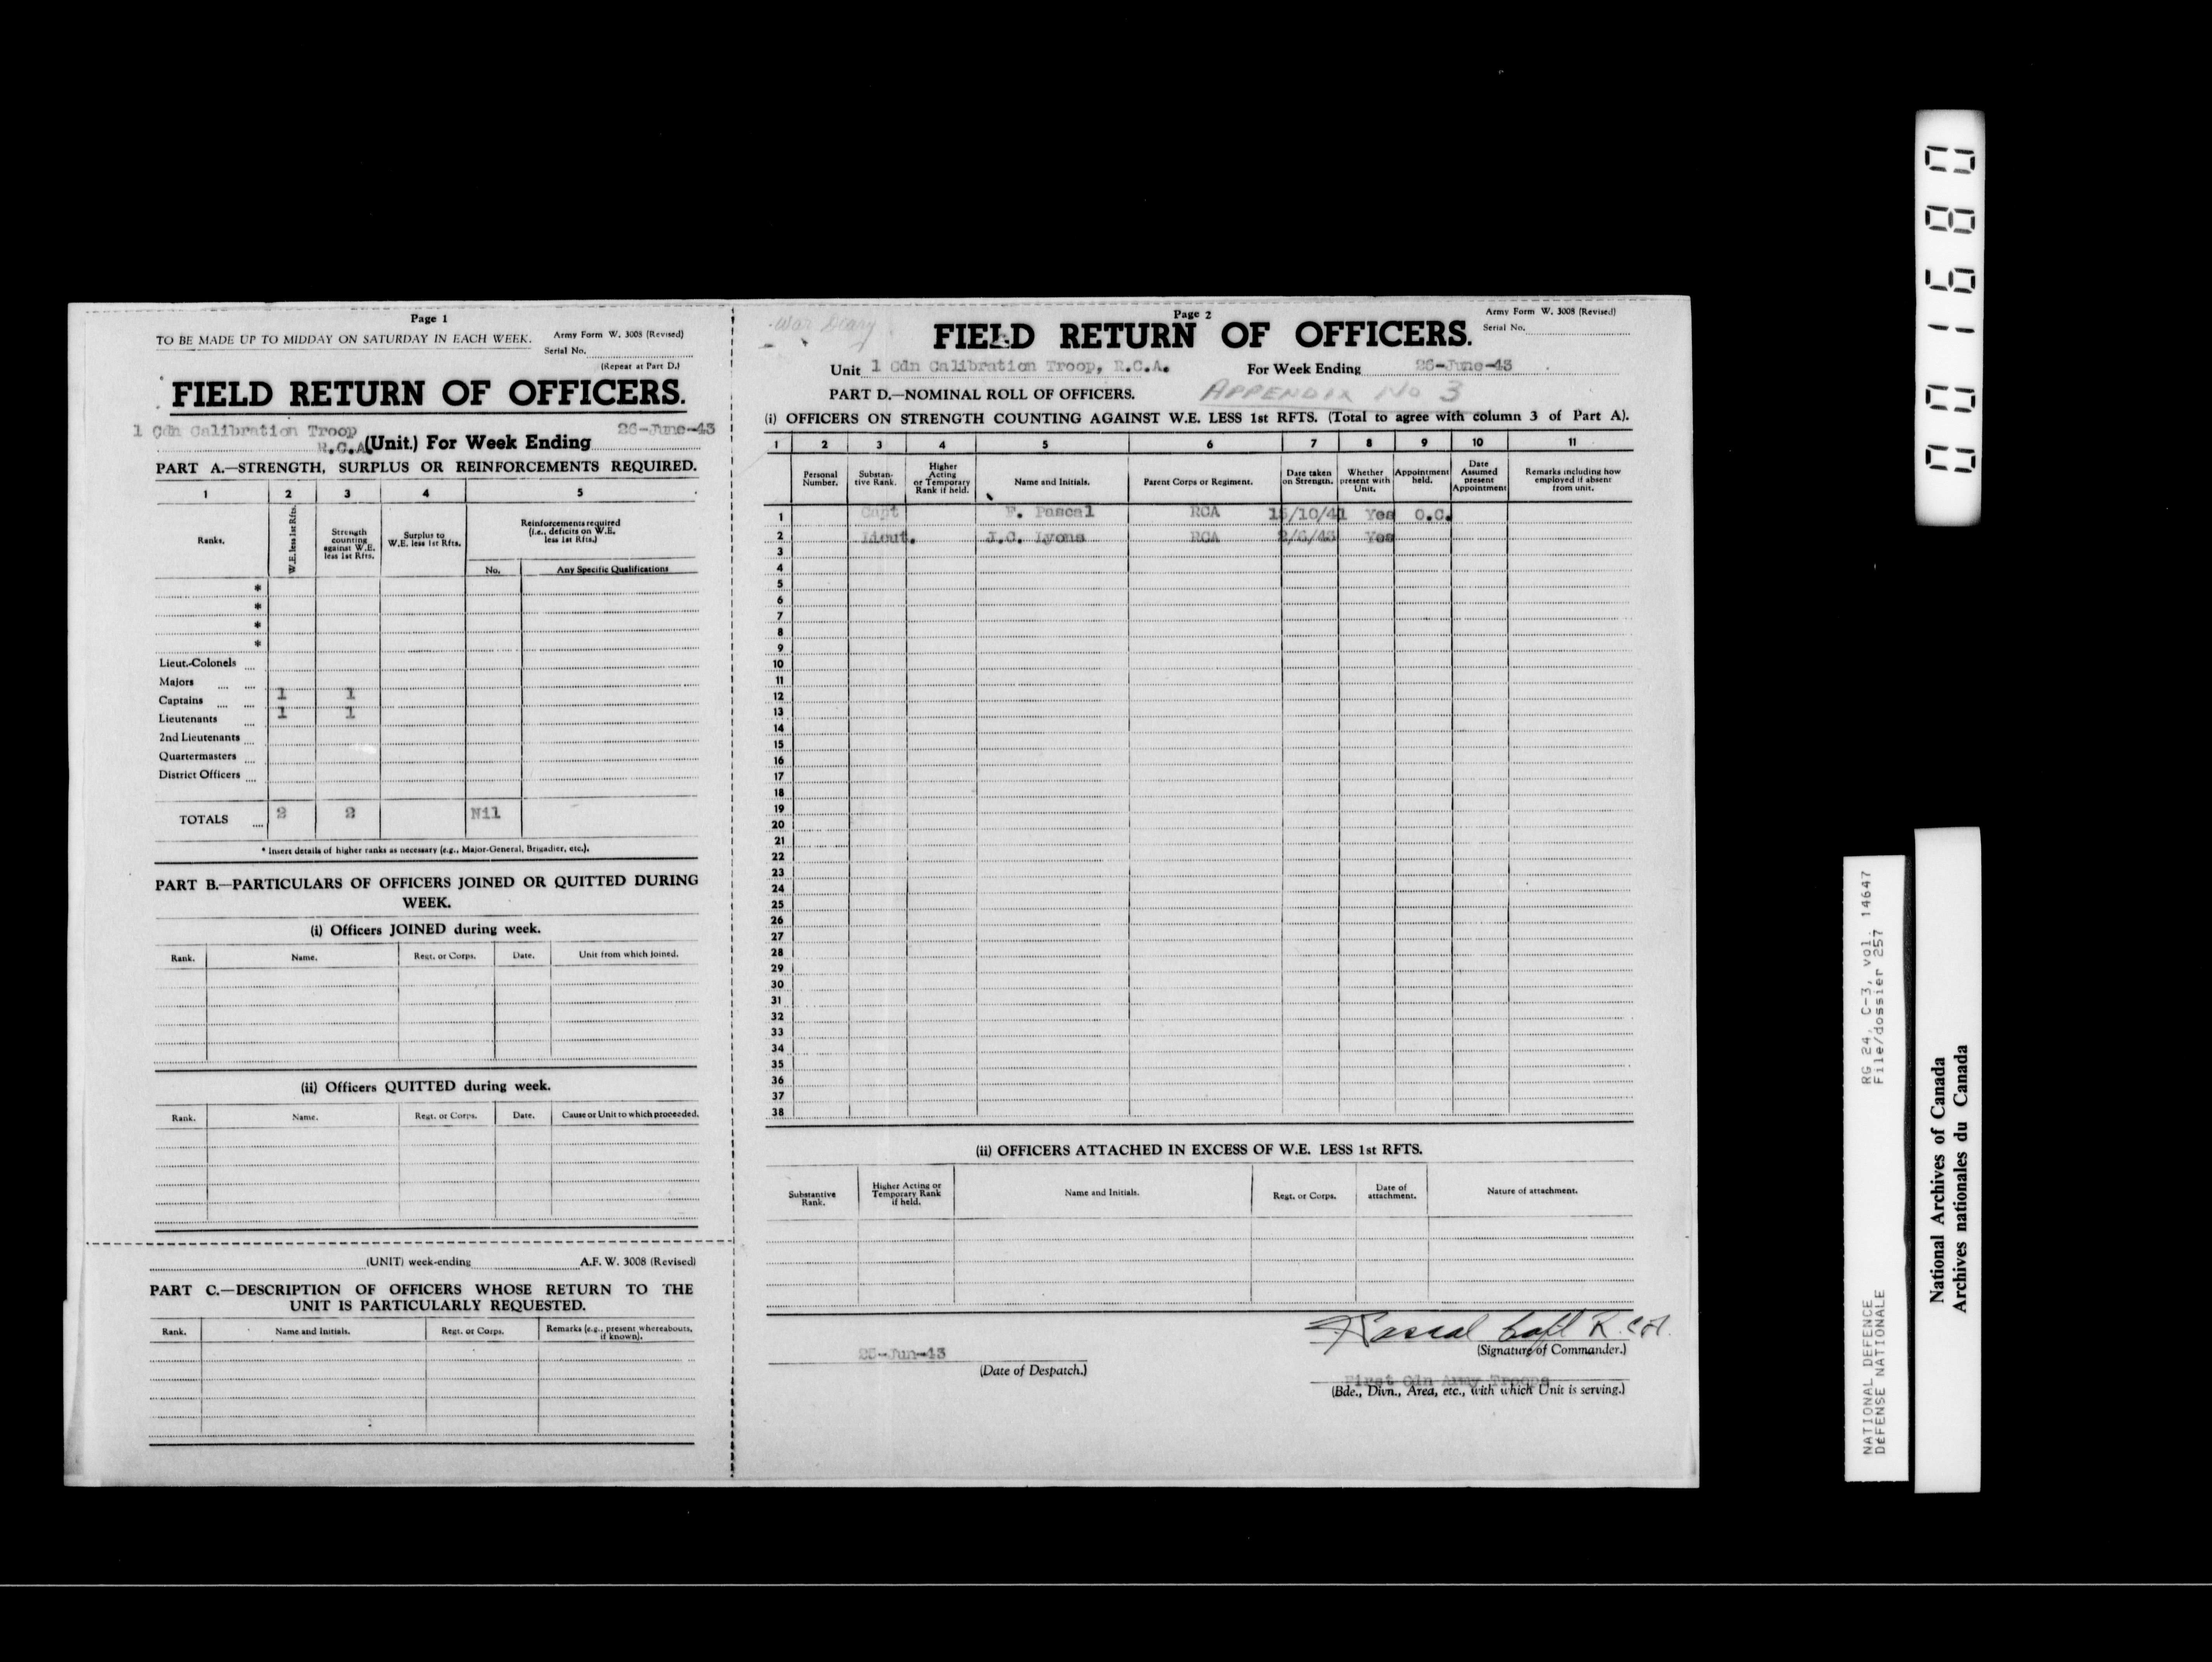 Page 1
TO BE MADE UP TO MIDDAY ON SATURDAY IN EACH WEEK.
Army Form W. 3008 (Revised)
Serial No.
(Repeat at Part D.)
FIELD RETURN OF OFFICERS.
1 Cdn Calibration Troop
R.C.A. (Unit.) For Week Ending 26-June-43
PART A.—STRENGTH, SURPLUS OR REINFORCEMENTS REQUIRED.
1 2 3 4 5
Ranks.
W.E. less 1st Rfts.
Strength counting against W.E. less 1st Rfts.
Surplus to W.E. less 1st Rfts.
Reinforcements required (i.e., deficits on W.E. less 1st Rfts.)
No. Any Specific Qualifications
*
*
*
*
Lieut.-Colonels ....
Majors .... ....
Captains .... .... 1 1
Lieutenants .... 1 1
2nd Lieutenants ....
Quartermasters ....
District Officers ....
TOTALS .... 2 2 Nil
* Insert details of higher ranks as necessary (e.g., Major-General, Brigadier, etc.).
PART B.—PARTICULARS OF OFFICERS JOINED OR QUITTED DURING
WEEK.
(i) Officers JOINED during week.
Rank. Name. Regt. or Corps. Date. Unit from which Joined.
(ii) Officers QUITTED during week.
Rank. Name. Regt. or Corps. Date. Cause or Unit to which proceeded.
(UNIT) week-ending A.F. W. 3008 (Revised)
PART C.—DESCRIPTION OF OFFICERS WHOSE RETURN TO THE
UNIT IS PARTICULARLY REQUESTED.
Rank. Name and Initials. Regt. or Corps. Remarks (e.g., present whereabouts, if known).
War Diary
Page 2
Army Form W. 3008 (Revised)
Serial No.
FIELD RETURN OF OFFICERS.
Unit 1 Cdn Calibration Troop, R.C.A. For Week Ending 26-June-43
PART D.—NOMINAL ROLL OF OFFICERS.
APPENDIX No 3
(i) OFFICERS ON STRENGTH COUNTING AGAINST W.E. LESS 1st RFTS. (Total to agree with column 3 of Part A).
1 2 3 4 5 6 7 8 9 10 11
Personal Number.
Substantive Rank.
Higher Acting or Temporary Rank if held.
Name and Initials.
Parent Corps or Regiment.
Date taken on Strength.
Whether present with Unit.
Appointment held.
Date Assumed present Appointment
Remarks including how employed if absent from unit.
1 Capt F. Pascal RCA 15/10/41 Yes O.C.
2 Lieut. J.C. Lyons RCA 2/6/43 Yes
3
4
5
6
7
8
9
10
11
12
13
14
15
16
17
18
19
20
21
22
23
24
25
26
27
28
29
30
31
32
33
34
35
36
37
38
(ii) OFFICERS ATTACHED IN EXCESS OF W.E. LESS 1st RFTS.
Substantive Rank.
Higher Acting or Temporary Rank if held.
Name and Initials.
Regt. or Corps.
Date of attachment.
Nature of attachment.
25-Jun-43
(Date of Despatch.)
F Pascal Capt R.C.A.
(Signature of Commander.)
First Cdn Army Troops
(Bde., Divn., Area, etc., with which Unit is serving.)
001680
RG 24, C-3, vol. 14647
File/dossier 257
NATIONAL DEFENCE
DÉFENSE NATIONALE
National Archives of Canada
Archives nationales du Canada